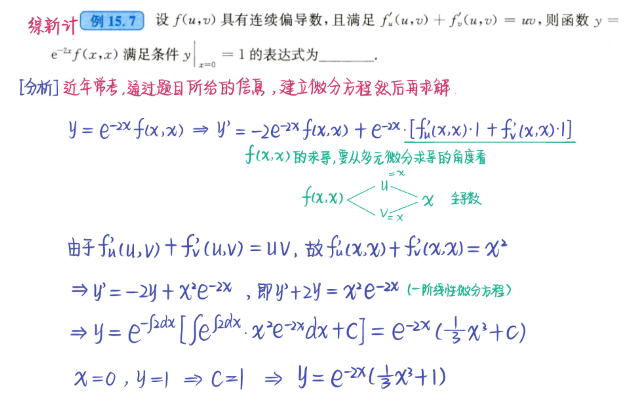 综新计 例 15.7 设 f(u,v) 具有连续偏导数,且满足 f'ᵤ(u,v) + f'ᵥ(u,v) = uv,则函数 y =
e⁻²ˣf(x,x) 满足条件 y|ₓ₌₀ = 1 的表达式为______.
[分析] 近年常考,通过题目所给的信息,建立微分方程然后再求解.
y = e⁻²ˣf(x,x) ⇒ y' = -2e⁻²ˣf(x,x) + e⁻²ˣ·[f'ᵤ(x,x)·1 + f'ᵥ(x,x)·1]
f(x,x)的求导,要从多元微分求导的角度看
f(x,x) < u=x v=x > x 全导数
由于 f'ᵤ(u,v) + f'ᵥ(u,v) = uv, 故 f'ᵤ(x,x) + f'ᵥ(x,x) = x²
⇒ y' = -2y + x²e⁻²ˣ , 即 y' + 2y = x²e⁻²ˣ (一阶线性微分方程)
⇒ y = e^(-∫2dx) [∫e^(∫2dx)·x²e⁻²ˣdx + C] = e⁻²ˣ(1/3 x³ + C)
x = 0 , y = 1 ⇒ C = 1 ⇒ y = e⁻²ˣ(1/3 x³ + 1)